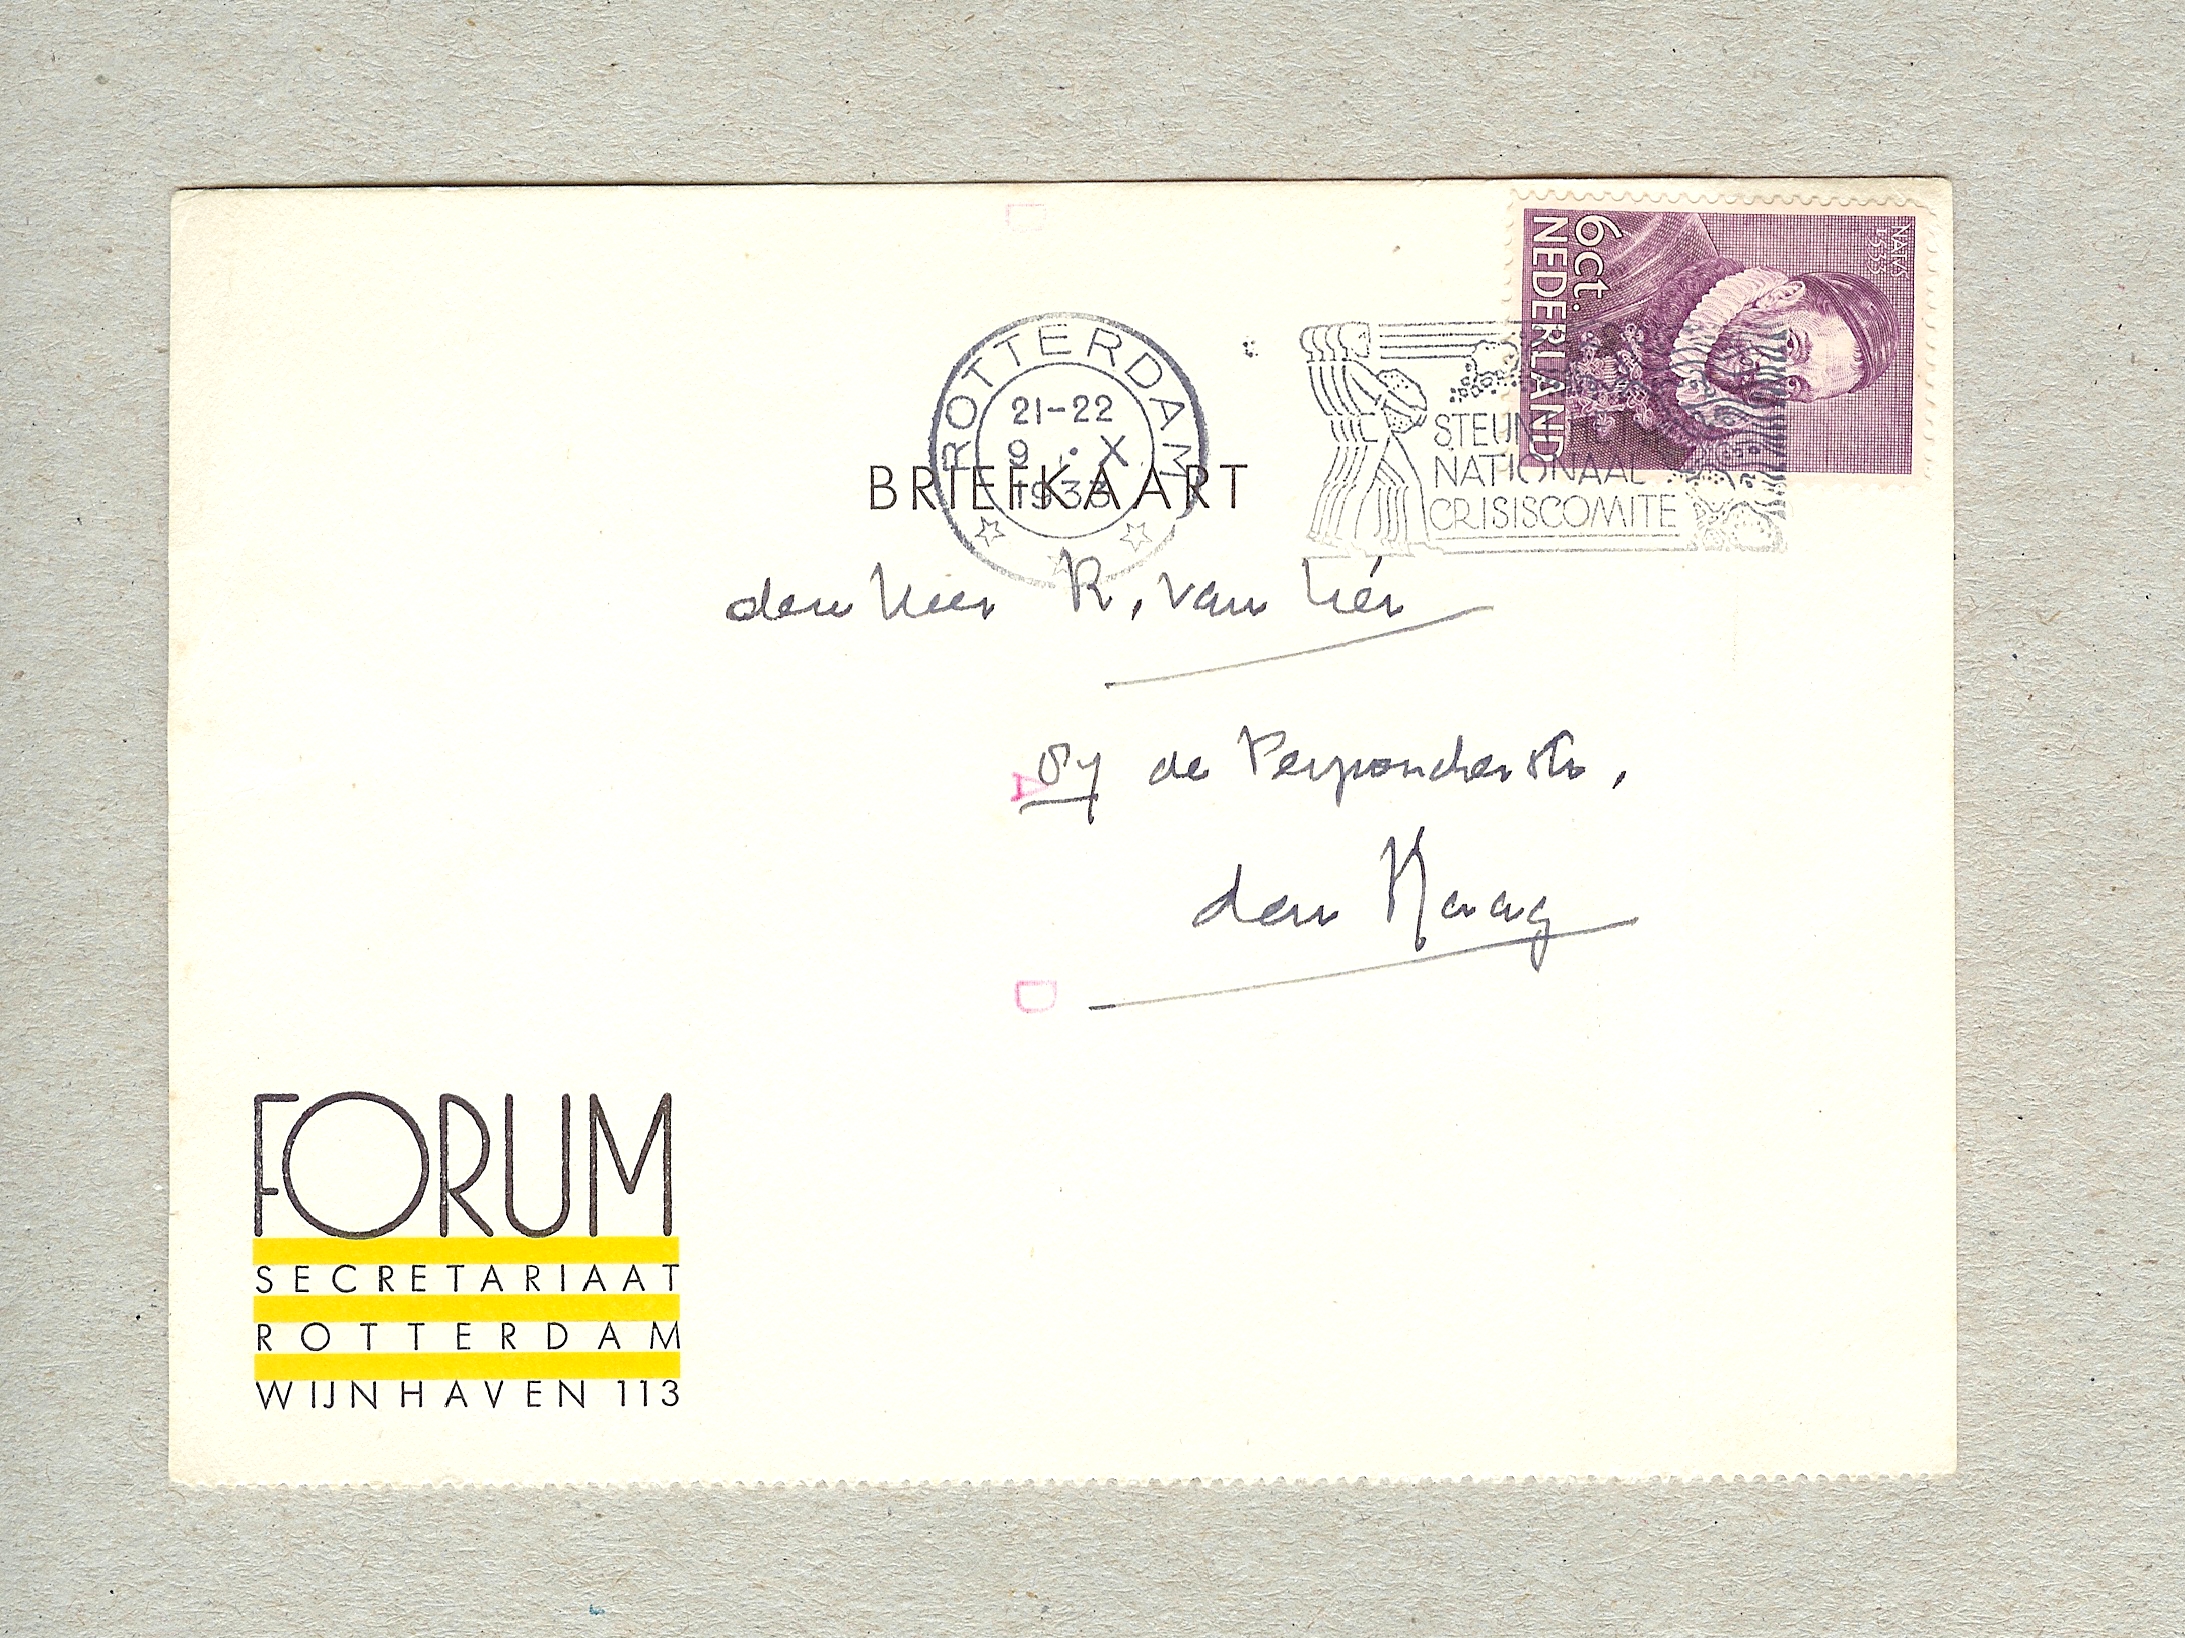 6ct.
NEDERLAND
1533
ROTTERDAM
21-22
9 . X
1933
STEUNT
NATIONAAL
CRISISCOMITE
BRIEFKAART
den Heer R. van Lier
de Perponcherstr.
den Haag
A
D
FORUM
SECRETARIAAT
ROTTERDAM
WIJNHAVEN 113